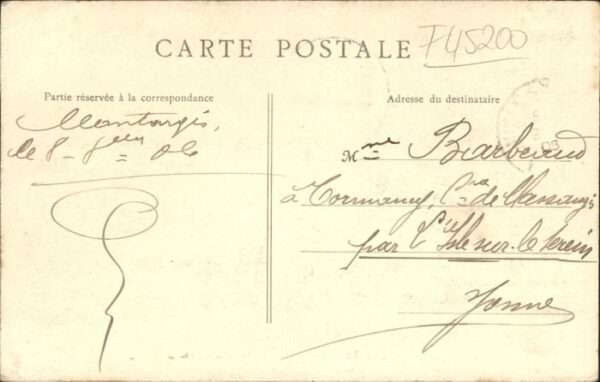 CARTE POSTALE
F45200
Partie réservée à la correspondance
Adresse du destinataire
Montargis,
le 8-
06
Mme Barbeaud
à Cormancy, Cne de Massangis
par l'Isle-sur-le Serein
Yonne